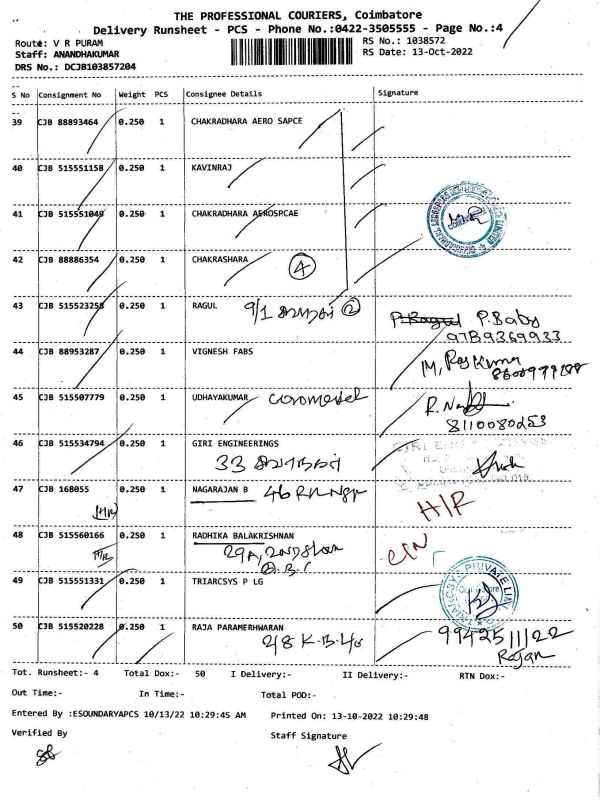 THE PROFESSIONAL COURIERS, Coimbatore
Delivery Runsheet - PCS - Phone No.:0422-3505555 - Page No.:4
Route: V R PURAM
RS No.: 1038572
Staff: ANANDHAKUMAR
RS Date: 13-Oct-2022
DRS No.: DCJB103857204
S No Consignment No Weight PCS Consignee Details Signature
39 CJB 88893464 0.250 1 CHAKRADHARA AERO SAPCE
40 CJB 515551158 0.250 1 KAVINRAJ
41 CJB 515551049 0.250 1 CHAKRADHARA AEROSPCAE
42 CJB 88886354 0.250 1 CHAKRASHARA 4
43 CJB 515523258 0.250 1 RAGUL 9/1 2 P. Ragul P. Baby
9789369933
44 CJB 88953287 0.250 1 VIGNESH FABS M. Raj Kumar
45 CJB 515507779 0.250 1 UDHAYAKUMAR
8110080253
46 CJB 515534794 0.250 1 GIRI ENGINEERINGS
33
47 CJB 168055 0.250 1 NAGARAJAN B 46 H/R
H/R
48 CJB 515560166 0.250 1 RADHIKA BALAKRISHNAN C/N
H/R 29A,
49 CJB 515551331 0.250 1 TRIARCSYS P LG
50 CJB 515520228 0.250 1 RAJA PARAMERHWARAN 9942511122
2/8 Rajan
Tot. Runsheet:- 4 Total Dox:- 50 I Delivery:- II Delivery:- RTN Dox:-
Out Time:- In Time:- Total POD:-
Entered By :ESOUNDARYAPCS 10/13/22 10:29:45 AM Printed On: 13-10-2022 10:29:48
Verified By Staff Signature